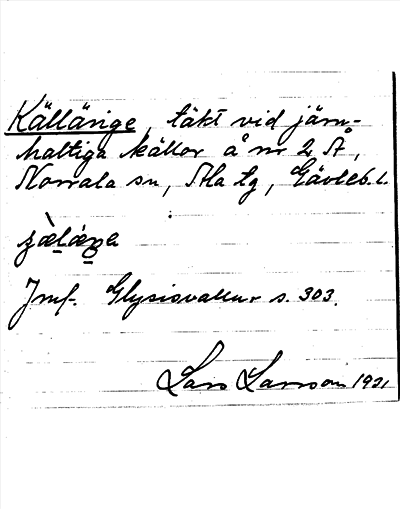 Källänge, täkt vid järn-
haltiga källor å nr 2 Å,
Norrala sn, Ala tg, Gävleb. l.
Jmf. Glysisvallur s. 303.
Lars Larsson 1921